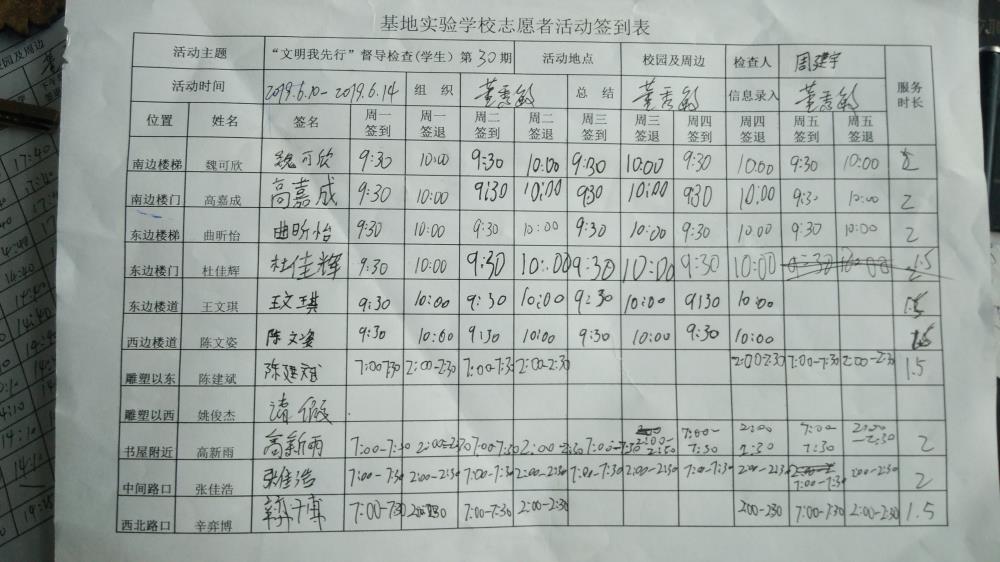 基地实验学校志愿者活动签到表
活动主题 “文明我先行”督导检查(学生) 第30期 活动地点 校园及周边 检查人 周建宇 服务时长
活动时间 2019.6.10-2019.6.14 组织 董秀敏 总结 董秀敏 信息录入 董秀敏
位置 姓名 签名 周一签到 周一签退 周二签到 周二签退 周三签到 周三签退 周四签到 周四签退 周五签到 周五签退
南边楼梯 魏可欣 魏可欣 9:30 10:00 9:30 10:00 9:30 10:00 9:30 10:00 9:30 10:00 2
南边楼门 高嘉成 高嘉成 9:30 10:00 9:30 10:00 9:30 10:00 9:30 10:00 9:30 10:00 2
东边楼梯 曲昕怡 曲昕怡 9:30 10:00 9:30 10:00 9:30 10:00 9:30 10:00 9:30 10:00 2
东边楼门 杜佳辉 杜佳辉 9:30 10:00 9:30 10:00 9:30 10:00 9:30 10:00 1.5
东边楼道 王文琪 王文琪 9:30 10:00 9:30 10:00 9:30 10:00 9:30 10:00 1.5
西边楼道 陈文姿 陈文姿 9:30 10:00 9:30 10:00 9:30 10:00 9:30 10:00
雕塑以东 陈建斌 陈建斌 7:00-7:30 2:00-2:30 7:00-7:30 2:00-2:30 2:00-2:30 7:00-7:30 2:00-2:30 1.5
雕塑以西 姚俊杰 请假
书屋附近 高新雨 高新雨 7:00-7:30 2:00-2:30 7:00-7:30 2:00-2:30 7:00-7:30 2:00-2:30 7:00-7:30 2:00 2:30 7:00-7:30 2:00-2:30 2
中间路口 张佳浩 张佳浩 7:00-7:30 2:00-2:30 7:00-7:30 2:00-2:30 7:00-7:30 2:00-2:30 7:00-7:30 2:00-2:30 7:00-7:30 2:00-2:30 2
西北路口 辛弈博 辛弈博 7:00-7:30 2:00-2:30 7:00-7:30 2:00-2:30 2:00-2:30 7:00-7:30 2:00-2:30 1.5